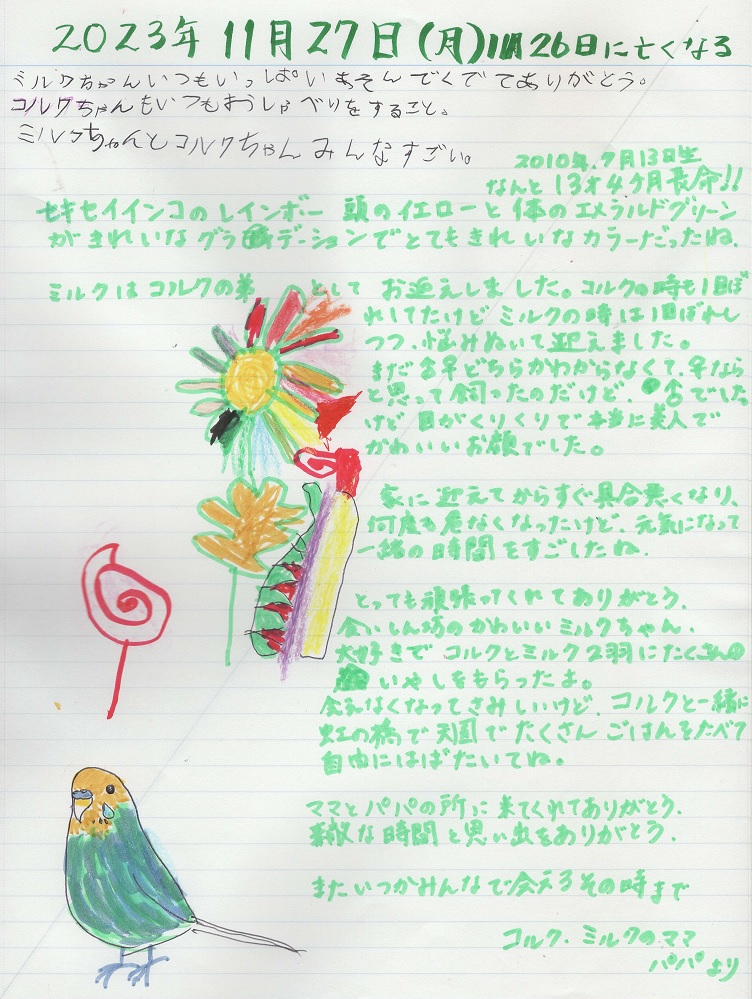 2023年 11月27日(月)11月26日に亡くなる
ミルクちゃんいつもいっぱいあそんでくでてありがとう。
コルクちゃんもいつもおしゃべりをすること。
ミルクちゃんとコルクちゃんみんなすごい。
2010年.7月13日生
なんと13才4ヶ月長命!!
セキセイインコのレインボー 頭のイエローと体のエメラルドグリーン
がきれいなグラディデーションでとてもきれいなカラーだったね.
ミルクはコルクの弟 として お迎えしました。コルクの時も1目ぼ
れしてたけどミルクの時は1目ぼれし
つつ、悩みぬいて迎えました。
まだ ♀♂どちらかわからなくて、♀なら
と思って飼ったのだけど、♂でした
けど目がくりくりで本当に美人で
かわいいお顔でした。
家に迎えてからすぐ具合悪くなり、
何度も危なくなったけど、元気になって
一緒の時間をすごしたね.
とっても頑張ってくれてありがとう.
食いしん坊のかわいいミルクちゃん.
大好きでコルクとミルク2羽にたくさんの
いやしをもらったよ。
会えなくなってさみしいけど、コルクと一緒に
虹の橋で天国でたくさんごはんをたべて
自由にはばたいてね。
ママとパパの所に来てくれてありがとう.
素敵な時間と思い出をありがとう.
またいつかみんなで会えるその時まで
コルク.ミルクのママ
パパより